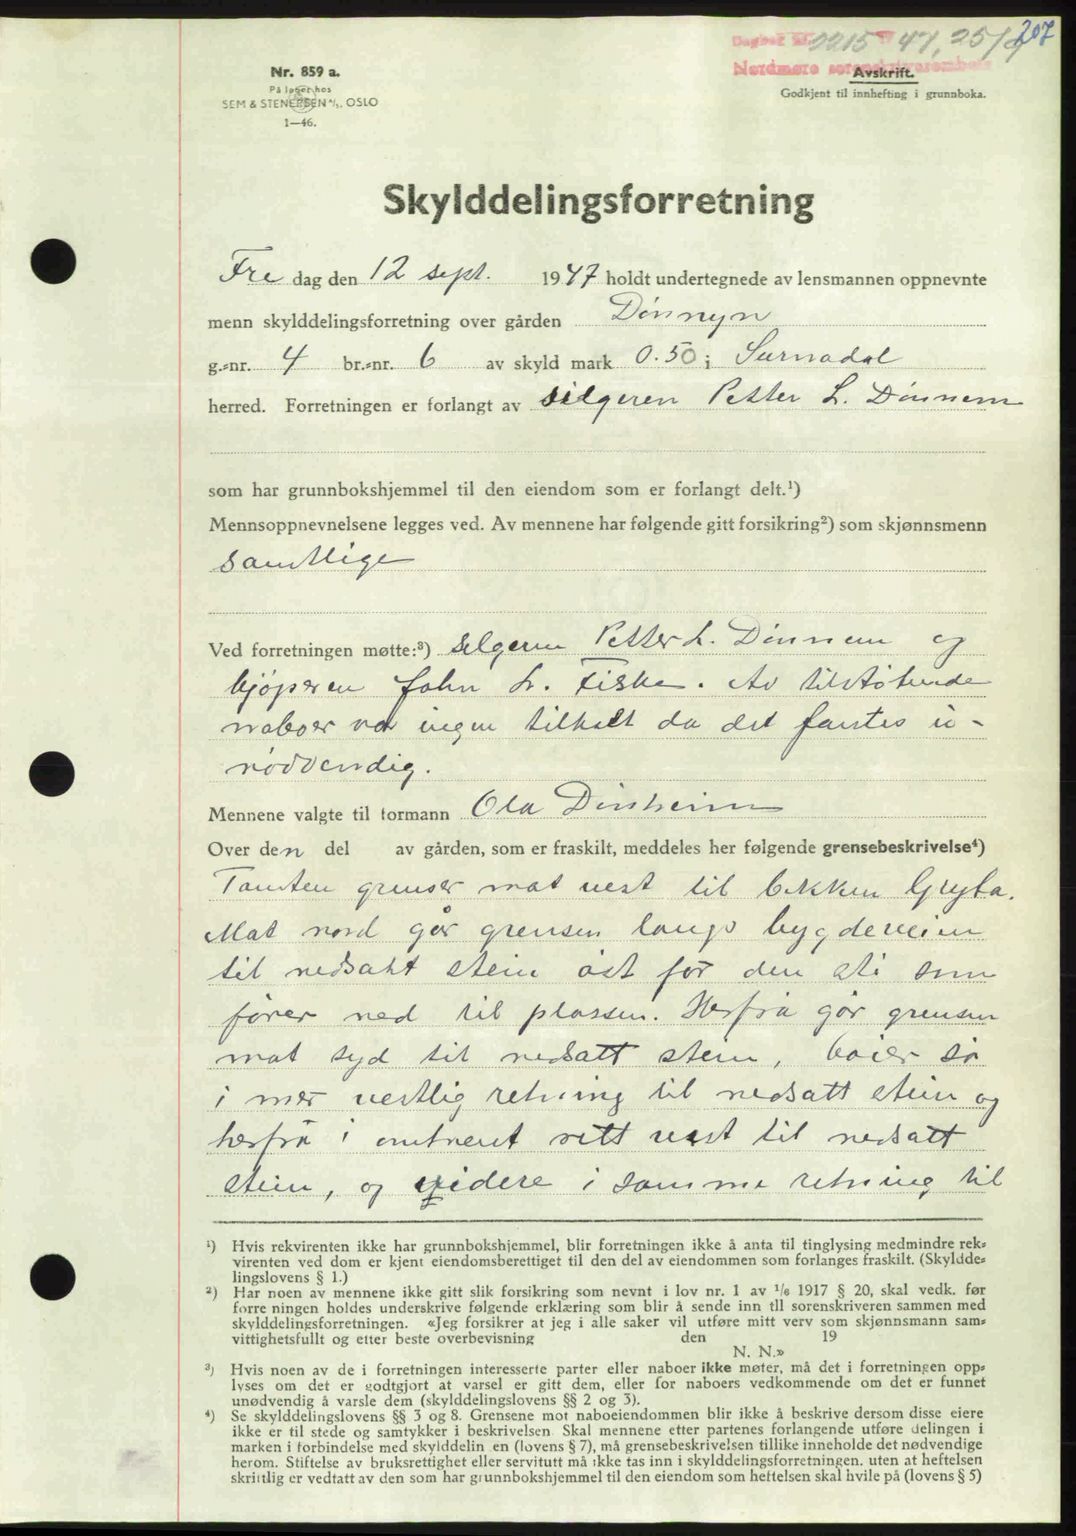 207
Dagbok nr. 2215 19 47, 25/9
Nordmøre sorenskriverembete
Nr. 859 a.
På lager hos
SEM & STENERSEN A/S, OSLO
1—46.
Avskrift.
Godkjent til innhefting i grunnboka.
Skylddelingsforretning
Fre dag den 12 sept. 1947 holdt undertegnede av lensmannen oppnevnte
menn skylddelingsforretning over gården Dönnyn
g.=nr. 4 br.=nr. 6 av skyld mark 0.50 i Surnadal
herred. Forretningen er forlangt av selgeren Petter L. Dönnem
som har grunnbokshjemmel til den eiendom som er forlangt delt.¹)
Mennsoppnevnelsene legges ved. Av mennene har følgende gitt forsikring²) som skjønnsmenn
samtlige
Ved forretningen møtte:³) selgeren Petter L. Dönnem og
kjöperen John L. Fiske. Av tilstötende
naboer var ingen tilkalt da det fantes u-
nödvendig.
Mennene valgte til formann Ola Dönheim
Over den del av gården, som er fraskilt, meddeles her følgende grensebeskrivelse⁴)
Tomten grenser mot vest til bekken Gryta.
Mot nord går grensen langs bygdeveien
til nedsatt stein öst for den sti som
förer ned til plassen. Herfra går grensen
mot syd til nedsatt stein, böier så
i mer vestlig retning til nedsatt stein og
herfra i omtrent rett vest til nedsatt
stein, og videre i samme retning til
¹) Hvis rekvirenten ikke har grunnbokshjemmel, blir forretningen ikke å anta til tinglysing medmindre rek=
virenten ved dom er kjent eiendomsberettiget til den del av eiendommen som forlanges fraskilt. (Skyldde=
lingslovens § 1.)
²) Har noen av mennene ikke gitt slik forsikring som nevnt i lov nr. 1 av 1/6 1917 § 20, skal vedk. før
forretningen holdes underskrive følgende erklæring som blir å sende inn til sorenskriveren sammen med
skylddelingsforretningen. «Jeg forsikrer at jeg i alle saker vil utføre mitt verv som skjønnsmann sam=
vittighetsfullt og etter beste overbevisning den 19
N. N.»
³) Hvis noen av de i forretningen interesserte parter eller naboer ikke møter, må det i forretningen opp=
lyses om det er godtgjort at varsel er gitt dem, eller for naboers vedkommende om det er funnet
unødvendig å varsle dem (skylddelingslovens §§ 2 og 3).
⁴) Se skylddelingslovens §§ 3 og 8. Grensene mot naboeiendommen blir ikke å beskrive dersom disse eiere
ikke er til stede og samtykker i beskrivelsen. Skal mennene etter partenes forlangende utføre delingen i
marken i forbindelse med skylddelingen (lovens § 7), må grensebeskrivelsen tillike inneholde det nødvendige
herom. Stiftelse av bruksrettighet eller servitutt må ikke tas inn i skylddelingsforretningen. uten at heftelsen
skriftlig er vedtatt av den som har grunnbokshjemmel til den eiendom som heftelsen skal hvile på (lovens § 5)